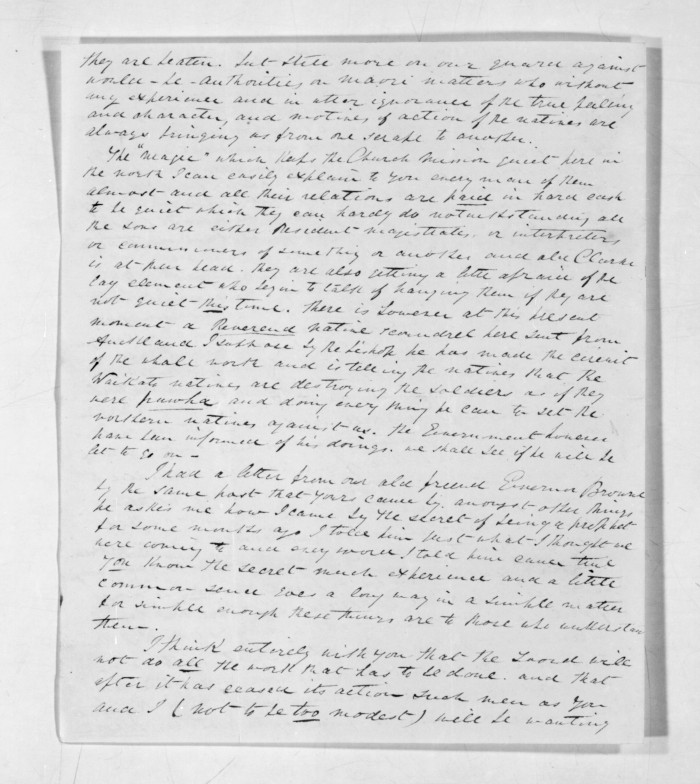 they are beaten. but still more on our guard against
would-be-authorities on maori matters who without
any experience and in utter ignorance of the true feeling
and character, and motives of action of the natives are
always bringing us from one scrape to another.
The "magic" which keeps the Church Mission quiet here in
the north I can easily explain to you every man of them
almost and all their relations are paid in hard cash
to be quiet which they can hardly do notwithstanding all
the sons are either Resident magistrates. or interpreters
or commissioners of something or another and old Clarke
is at their head. they are also getting a little afraid of the
lay element who begin to talk of hanging them if they are
not quiet this time. There is however at this present
moment a Reverend native scoundrel here sent from
Auckland I suppose by the bishop he has made the circuit
of the whole north and is telling the natives that the
Waikato natives are destroying the soldiers as if they
were and doing every thing he can to set the
northern natives against us. the Government however
have been informed of his doings. we shall see if he will be
let to go on –
I had a letter from our old friend Governor Browne
by the same post that yours came by. amongst other things
he asks me how I came by the secret of being a prophet
for some months ago I told him just what I thought we
were coming to and every word I told him came true
you know the secret much experience and a little
common sense goes a long way in a simple matter
for simple enough these things are to those who understan
them –
I think entirely with you that the Sword will
not do all the work that has to be done. and that
after it has ceased its action such men as you
and I (not to be too modest) will be wanting